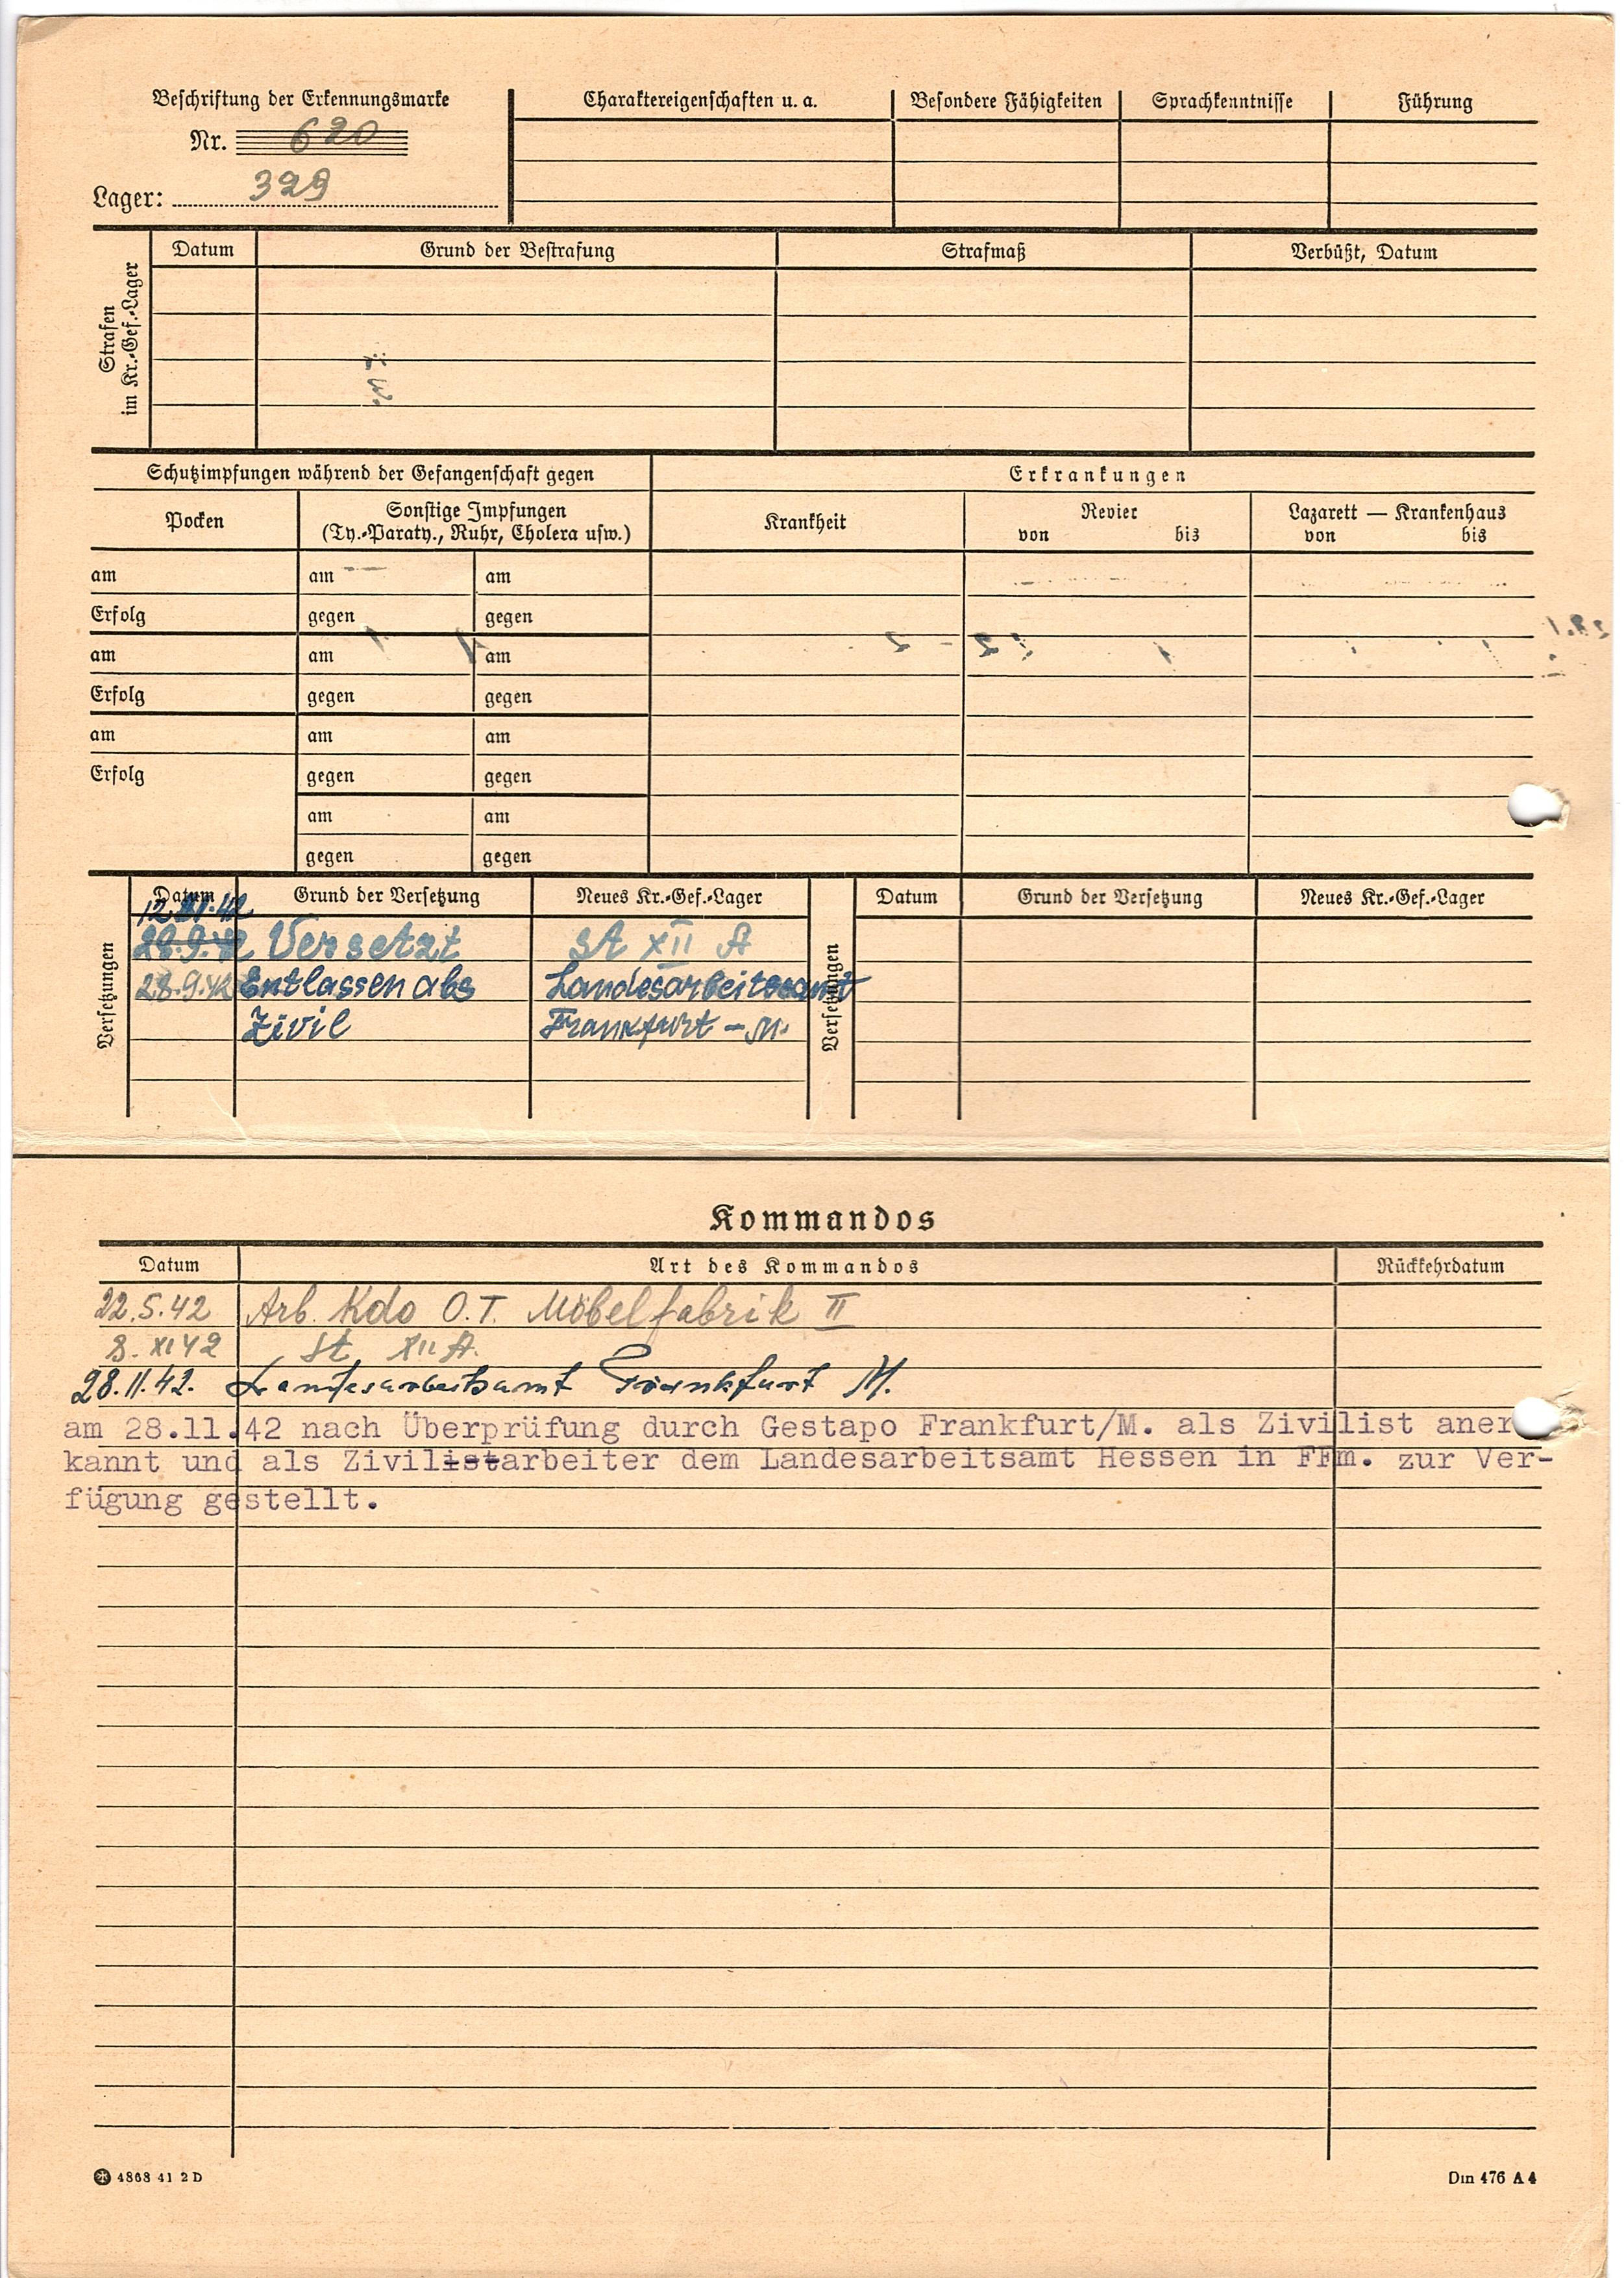 Beschriftung der Erkennungsmarke
Nr. 620
Lager: 329
Charaktereigenschaften u. a. Besondere Fähigkeiten Sprachkenntnisse Führung
Strafen
im Kr.-Gef.-Lager
Datum Grund der Bestrafung Strafmaß Verbüßt, Datum
Schutzimpfungen während der Gefangenschaft gegen Erkrankungen
Pocken Sonstige Impfungen
(Ty.-Paraty., Ruhr, Cholera usw.)
Krankheit Revier Lazarett — Krankenhaus
von bis von bis
am am am
Erfolg gegen gegen
am am am
Erfolg gegen gegen
am am am
Erfolg gegen gegen
am am
gegen gegen
Versetzungen
Datum Grund der Versetzung Neues Kr.-Gef.-Lager
12.XI.42
28.9.42 Versetzt St XII A
28.9.42 Entlassen als Landesarbeitsamt
Zivil Frankfurt - M.
Versetzungen
Datum Grund der Versetzung Neues Kr.-Gef.-Lager
Kommandos
Datum Art des Kommandos Rückkehrdatum
22.5.42 Arb. Kdo O.T. Möbelfabrik II
8. XI 42 St XII A.
28.11.42. Landesarbeitsamt Frankfurt M.
am 28.11.42 nach Überprüfung durch Gestapo Frankfurt/M. als Zivilist aner
kannt und als Zivilistarbeiter dem Landesarbeitsamt Hessen in FFm. zur Ver-
fügung gestellt.
4868 41 2 D
Din 476 A 4